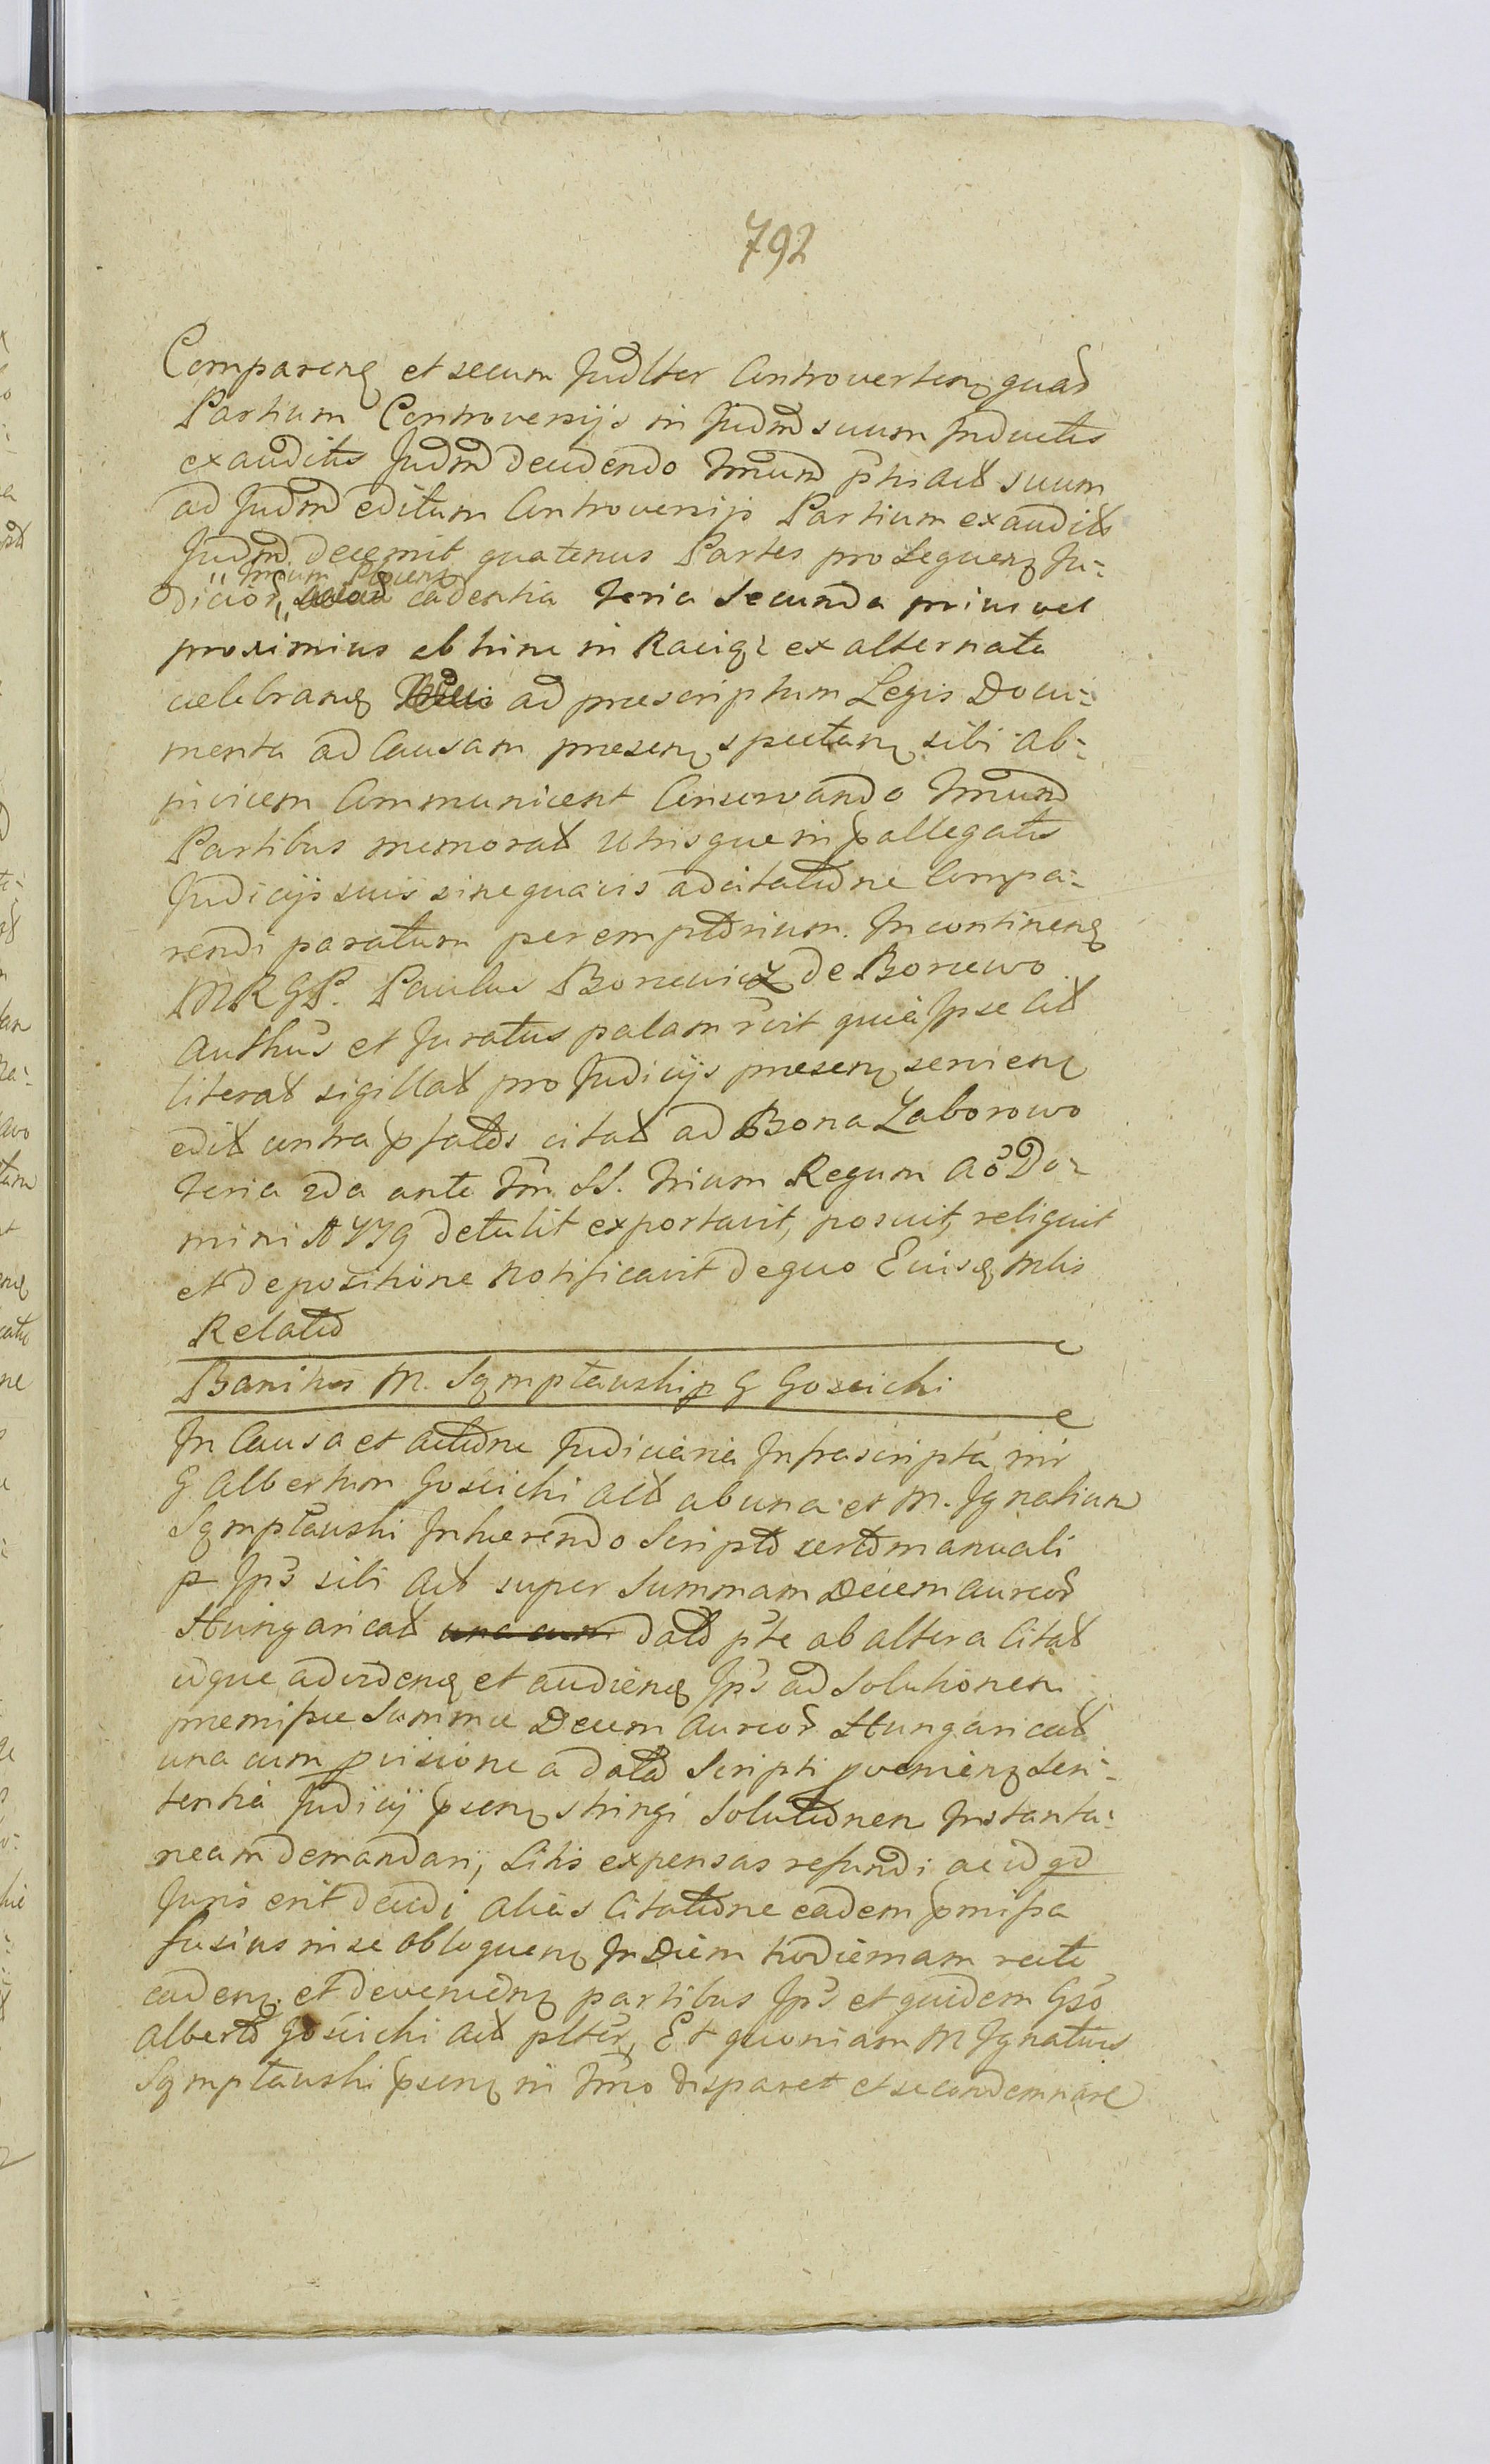 792
Comparenq et secum Judlter Controverten quar
Partium Controversijs in Judm suum Inductis
exauditis Judm decidendo Tmum pntis Act suum
ad Judm editum Controversijs Partium exaudit
Judm decernit quatenus Partes pro sequen Ju-
dicior, Tmum cadentia feria secunda prius vel
proximius ab hinc in Raciąż ex alternata
celebranq ad praescriptum Legis Docu-
menta ad Causam praesen spectan sibi ab-
invicem Communicent Conservando Tmum
Partibus memorat utrisque in pallegatis
Judicijs suis sine quavis adcitatione Compa-
rendi paratum peremptorium. Incontinenq
MRGP. Paulus Boniewicz de Boniewo
Authus et Juratus palam rcit quia Ipse Cit
literat sigillat pro Judicijs praesen servien
edit contra pfatos citat ad Bona Zaborowo
feria 2da ante Fm SS. Trium Regum Ao Do-
mini 1779 detulit exportavit, posuit, reliquit
et depositione notificavit de quo Eiusq Mlis
Relatio
Banitio M. Sąmptawski p G Gościcki
In Causa et actione Judiciaria Infrascripta inr
G Albertum Gościcki Act ab una et M. Ignatium
Sąmptawski Inhaerendo Scripto certo manuali
p Ips sibi Act super Summam Decem Aureor
Hungaricat una cum dato pte ab altera Citat
idque ad videnq et audienq Ips ad Solutionem
premissae Summae Decem Aureor Hungaricat
una cum pvisione a data Scripti pvenien Sen-
tentia Judicij psen stringi Solutionem Instanta-
neam demandari, Litis expensas refundi ac id qd
Juris erit decidi alias Citatione eadem pmissa
fusius in se obloquen In Diem hodiernam recte
caden et devenien partibus Ips et quidem Gso
Alberto Gościcki Act plter, Et quoniam M Ignatius
Sąmptawski psen in Tmo disparet et se condemnare